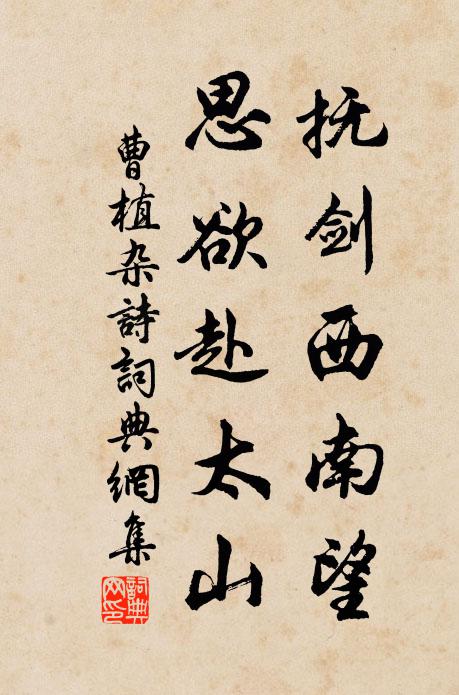 抚剑西南望
思欲赴太山
曹植杂詩詞典網集
詞典网印